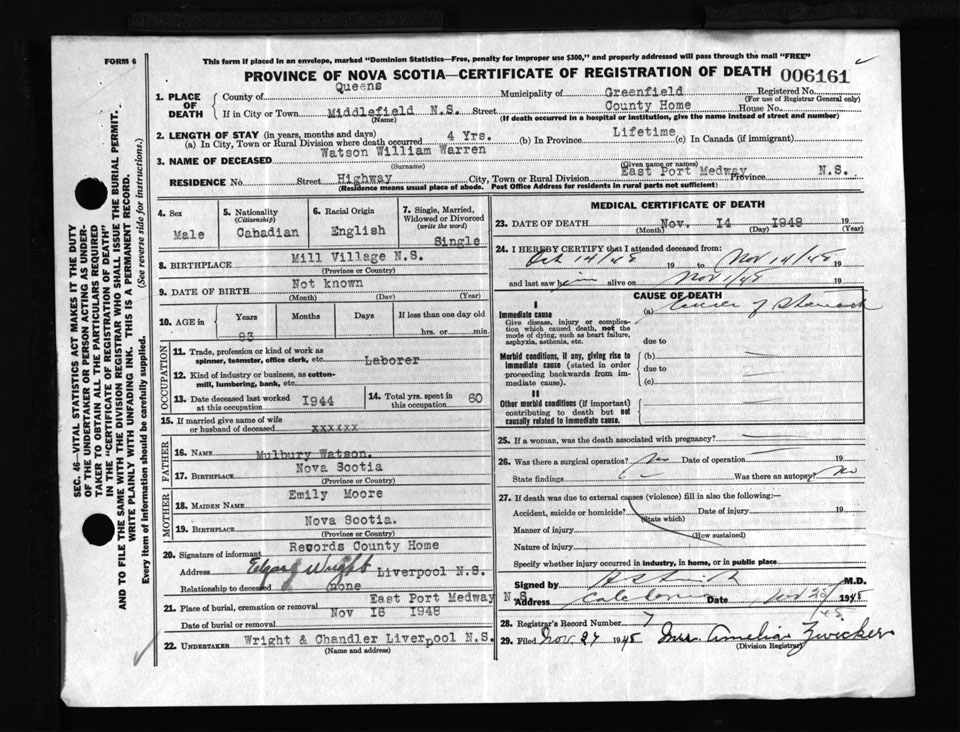 FORM 6
This form if placed in an envelope, marked "Dominion Statistics—Free, penalty for improper use $300," and properly addressed will pass through the mail "FREE"
PROVINCE OF NOVA SCOTIA—CERTIFICATE OF REGISTRATION OF DEATH 006161
1. PLACE OF DEATH
County of Queens Municipality of Greenfield Registered No.
(For use of Registrar General only)
If in City or Town Middlefield N.S. Street County Home House No.
(Name) (If death occurred in a hospital or institution, give the name instead of street and number)
2. LENGTH OF STAY (in years, months and days)
(a) In City, Town or Rural Division where death occurred 4 Yrs. (b) In Province Lifetime (c) In Canada (if immigrant)
3. NAME OF DECEASED Watson William Warren
(Surname) (Given name or names)
RESIDENCE No. Street Highway City, Town or Rural Division East Port Medway Province N.S.
(Residence means usual place of abode. Post Office Address for residents in rural parts not sufficient)
4. Sex Male
5. Nationality (Citizenship) Cahadian
6. Racial Origin English
7. Single, Married, Widowed or Divorced (write the word) Single
8. BIRTHPLACE Mill Village N.S.
(Province or Country)
9. DATE OF BIRTH Not known
(Month) (Day) (Year)
10. AGE in Years 93 Months Days If less than one day old hrs. or min.
OCCUPATION
11. Trade, profession or kind of work as spinner, teamster, office clerk, etc. Laborer
12. Kind of industry or business, as cotton-mill, lumbering, bank, etc.
13. Date deceased last worked at this occupation I944
14. Total yrs. spent in this occupation 60
15. If married give name of wife or husband of deceased xxxxxx
FATHER
16. NAME Mulbury Watson.
17. BIRTHPLACE Nova Scotia
(Province or Country)
MOTHER
18. MAIDEN NAME Emily Moore
19. BIRTHPLACE Nova Scotia.
(Province or Country)
20. Signature of informant Records County Home
Address Edgar Wright Liverpool N.S.
Relationship to deceased none
21. Place of burial, cremation or removal East Port Medway N S
Date of burial or removal Nov I6 I948
22. UNDERTAKER Wright & Chandler Liverpool N.S.
(Name and address)
MEDICAL CERTIFICATE OF DEATH
23. DATE OF DEATH Nov. I4 I948 19
(Month) (Day) (Year)
24. I HEREBY CERTIFY that I attended deceased from:
Oct 14/48 19 to Nov 14/48 19
and last saw him alive on Nov 1/48 19
CAUSE OF DEATH
I
Immediate cause (a) Cancer of Stomach
Give disease, injury or complication which caused death, not the mode of dying, such as heart failure, asphyxia, asthenia, etc.
due to
Morbid conditions, if any, giving rise to immediate cause (stated in order proceeding backwards from immediate cause).
(b)
due to
(c)
II
Other morbid conditions (if important) contributing to death but not causally related to immediate cause.
25. If a woman, was the death associated with pregnancy?
26. Was there a surgical operation? No Date of operation 19
State findings Was there an autopsy? No
27. If death was due to external causes (violence) fill in also the following:—
Accident, suicide or homicide? Date of injury 19
(State which)
Manner of injury
(How sustained)
Nature of injury
Specify whether injury occurred in industry, in home, or in public place
Signed by M.D.
Address Caledonia Date 1948
28. Registrar's Record Number 7
29. Filed Nov. 27 1948 Mrs. Amelia Zwicker
(Division Registrar)
SEC. 46—VITAL STATISTICS ACT MAKES IT THE DUTY
OF THE UNDERTAKER OR PERSON ACTING AS UNDER-
TAKER TO OBTAIN ALL THE PARTICULARS REQUIRED
IN THE "CERTIFICATE OF REGISTRATION OF DEATH"
AND TO FILE THE SAME WITH THE DIVISION REGISTRAR WHO SHALL ISSUE THE BURIAL PERMIT.
WRITE PLAINLY WITH UNFADING INK. THIS IS A PERMANENT RECORD.
Every item of information should be carefully supplied. (See reverse side for instructions.)